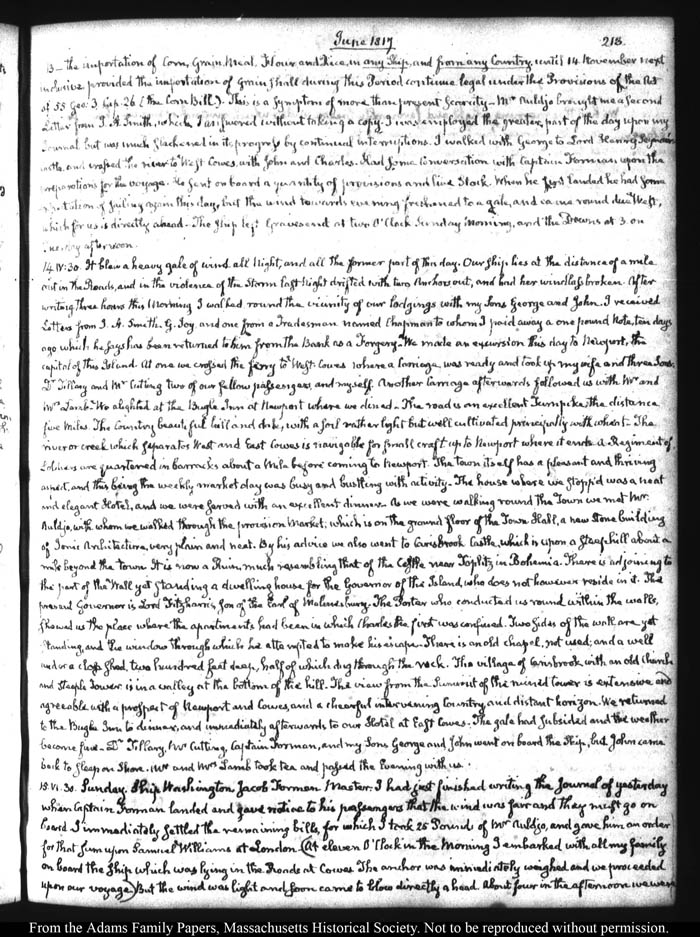 June 1817
218.
13 – the importation of Corn, Grain, Meal, Flour and Rice, in any Ship, and from any Country, until 14 November next
inclusive provided the importation of Grain shall during this Period continue legal under the Provisions of the Act
of 55 Geo: 3 Cap. 26 (the Corn Bill). This is a Symptom of more than present Scarcity – Mr Auldjo brought me a second
Letter from J. A. Smith, which I answered without taking a copy. I was employed the greater part of the day upon my
Journal but was much slackened in its progress by continual interruptions. I walked with George to Lord Henry Seymour's
castle, and crossed the river to West Cowes, with John and Charles. Had some conversation with Captain Forman upon the
preparations for the voyage. He sent on board a quantity of provisions and live Stock. When he first landed he had some
expectation of sailing again this day, but the wind towards evening freshened to a gale, and came round due West,
which for us is directly ahead – The Ship left Gravesend at two O'Clock Sunday Morning, and the Downs at 3. on
Tuesday afternoon.
14. IV:30. It blew a heavy gale of wind all Night, and all the former part of this day. Our Ship lies at the distance of a mile
out in the Roads, and in the violence of the Storm last Night drifted with two Anchors out, and had her windlass broken. After
writing three hours this Morning I walked round the vicinity of our lodgings with my Sons George and John. I received
Letters from J. A. Smith, G. Joy, and one from a Tradesman named Chapman to whom I paid away a one pound Note, ten days
ago which he says has been returned to him from the Bank as a Forgery. We made an excursion this day to Newport, the
capital of this Island. At one we crossed the ferry to West-Cowes where a Carriage was ready and took up my wife and three Sons,
Dr Tillary and Mr Cutting two of our fellow passengers, and myself. Another Carriage afterwards followed us with Mr and
Mrs Lamb. We alighted at the Bugle Inn at Newport where we dined. The road is an excellent Turnpike, the distance
five Miles. The Country beautiful hill and dale, with a soil rather light but well cultivated principally with wheat. The
river or creek which separates West and East Cowes is navigable for small craft up to Newport where it ends. A Regiment of
Soldiers are quartered in barracks about a Mile before coming to Newport. The town itself has a pleasant and thriving
aspect, and this being the weekly market day was busy and bustling with activity. The house where we stopp'd was a neat
and elegant Hotel, and we were served with an excellent dinner. As we were walking round the Town we met Mr
Auldjo, with whom we walked through the provision Market, which is on the ground floor of the Town Hall, a new stone building
of Ionic Architecture, very plain and neat. By his advice we also went to Carisbrook Castle, which is upon a steep hill about a
mile beyond the town. It is now a Ruin, much resembling that of the Castle near Töplitz in Bohemia. There is adjoining to
the part of the Wall yet standing a dwelling house for the Governor of the Island, who does not however reside in it. The
present Governor is Lord Fitzharris, Son of the Earl of Malmesbury. The Porter who conducted us round within the walls,
showed us the place where the apartments had been in which Charles the first was confined. Two sides of the wall are yet
standing, and the window through which he attempted to make his escape. There is an old chapel, not used; and a well
under a close shed, two hundred feet deep, half of which dug through the rock. The village of Carisbrook with an old Church
and Steeple Tower is in a valley at the bottom of the hill. The view from the Summit of the ruined tower is extensive and
agreeable with a prospect of Newport and Cowes, and a cheerful intervening Country and distant horizon. We returned
to the Bugle Inn to dinner, and immediately afterwards to our Hotel at East Cowes. The gale had subsided and the weather
become fine. Dr Tillary, Mr Cutting, Captain Forman, and my Sons George and John went on board the Ship, but John came
back to sleep on Shore. Mr and Mrs Lamb took tea and passed the Evening with us.
15. VI. 30. Sunday. Ship Washington Jacob Forman Master. I had just finished writing the Journal of yesterday
when Captain Forman landed and gave notice to his passengers that the wind was fair and they must go on
board I immediately settled the remaining bills, for which I took 25 Pound of Mr Auldjo, and gave him an order
for that sum upon Samuel Williams at London. (At eleven O'Clock in the Morning I embarked with all my family
on board the Ship which was lying in the Roads at Cowes. The anchor was immediately weighed and we proceeded
upon our voyage) But the wind was light and soon came to blow directly ahead. About four in the afternoon we were
From the Adams Family Papers, Massachusetts Historical Society. Not to be reproduced without permission.